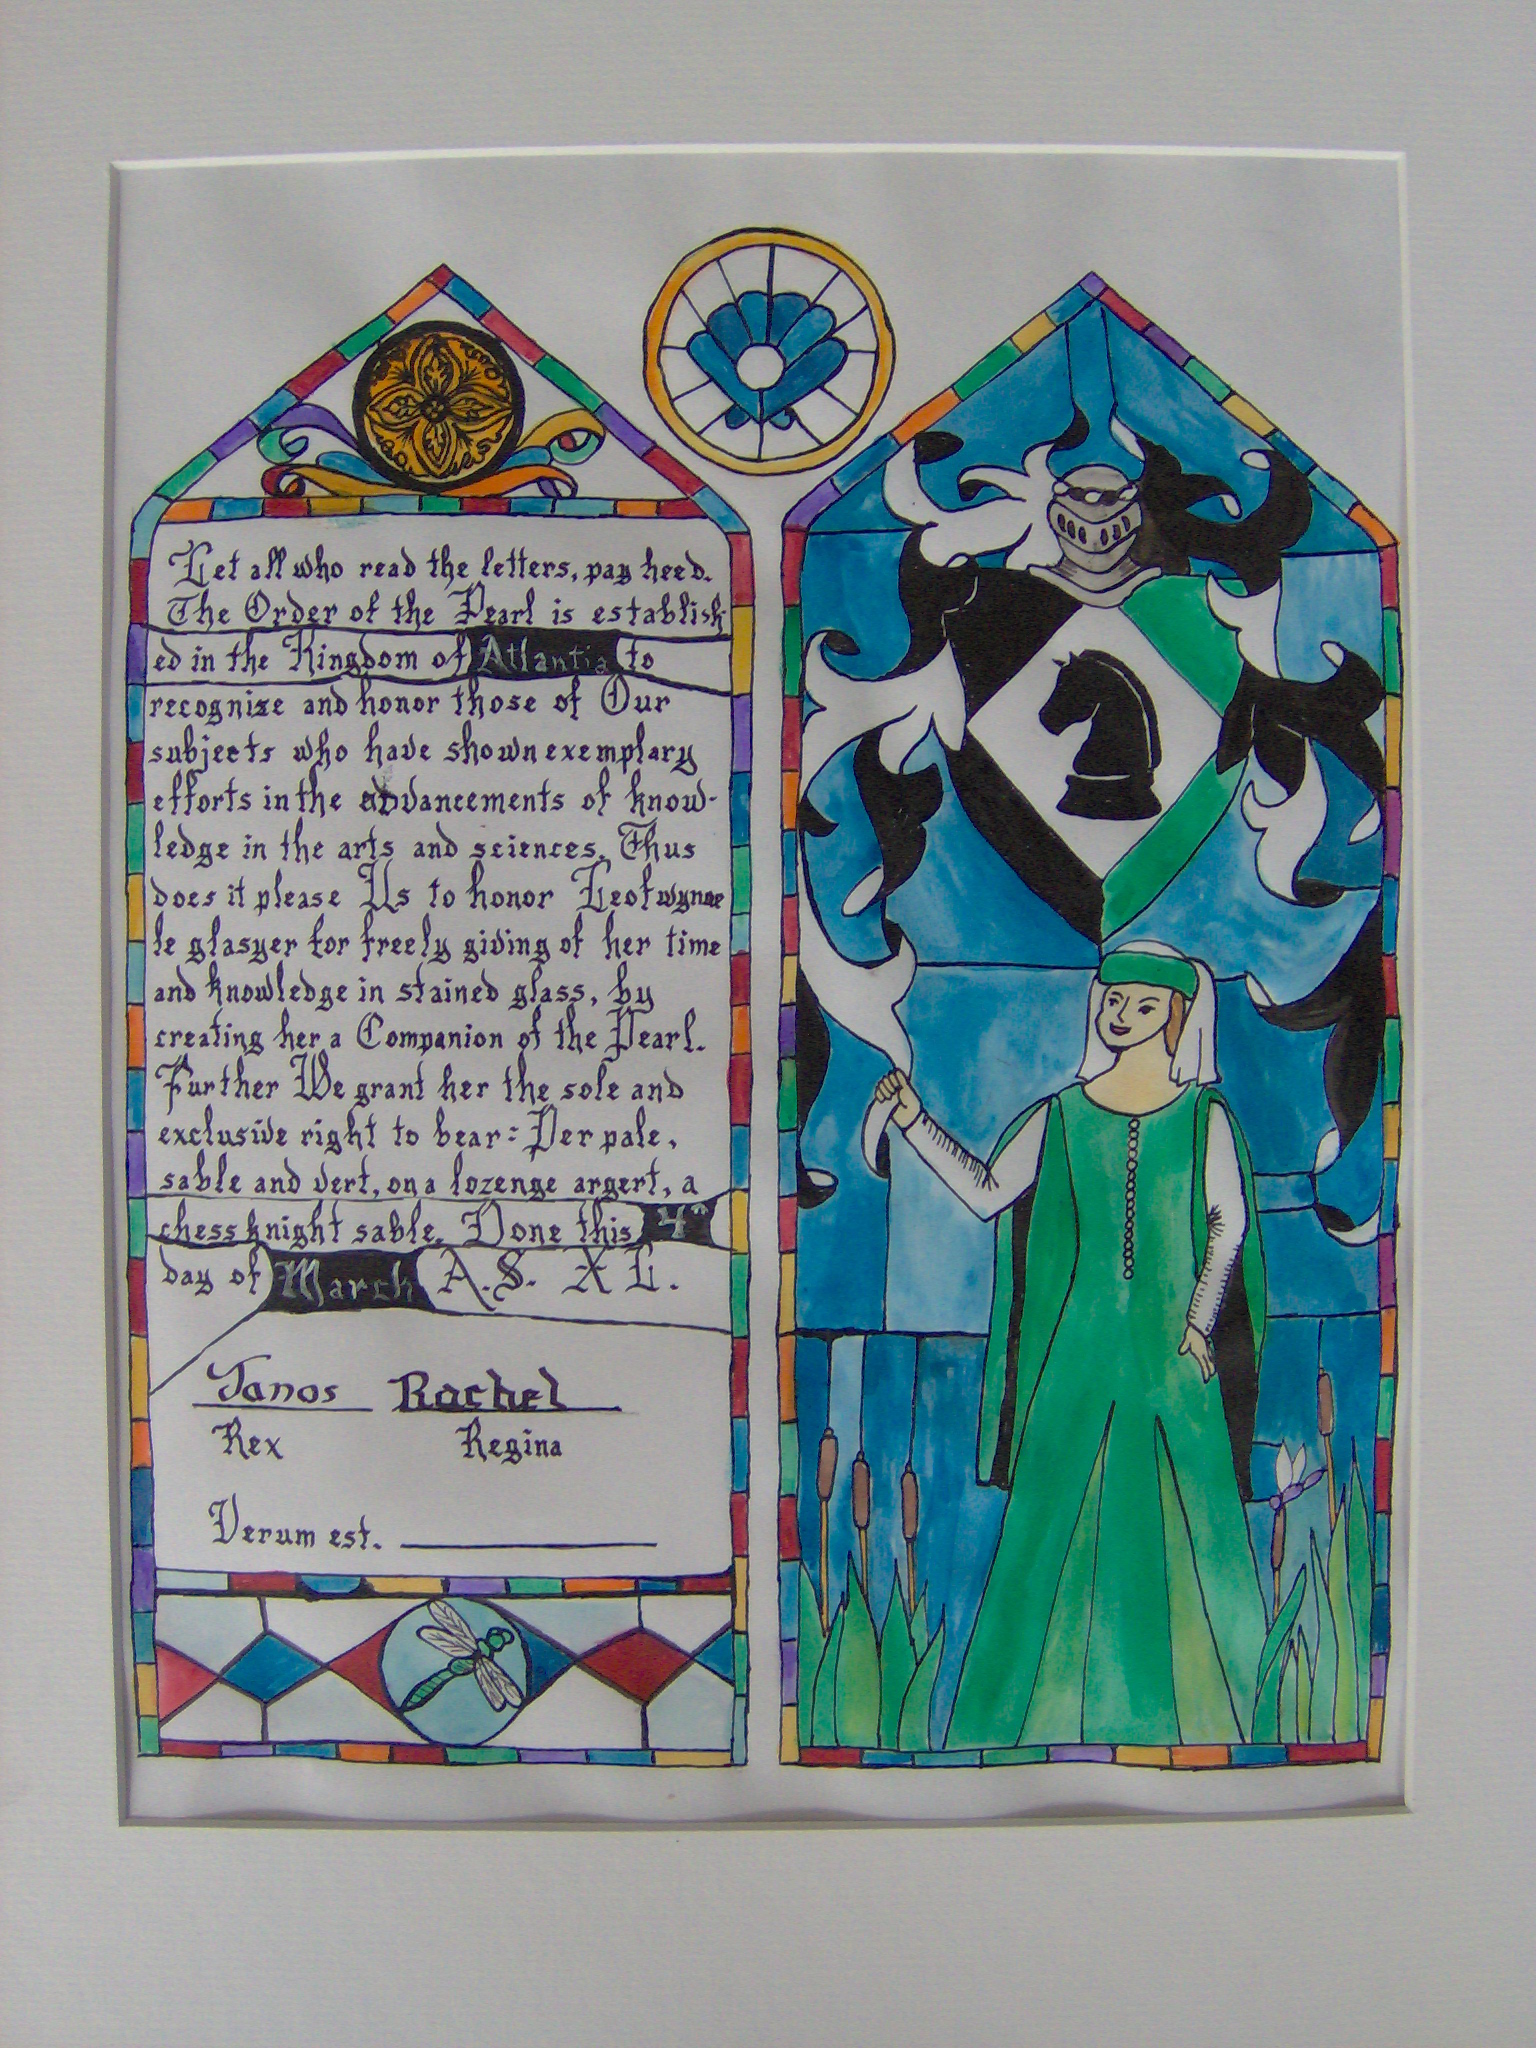 Let all who read the letters, pay heed.
The Order of the Pearl is establish-
ed in the Kingdom of Atlantia to
recognize and honor those of Our
subjects who have shown exemplary
efforts in the advancements of know-
ledge in the arts and sciences. Thus
does it please Us to honor Leofwynne
le glasyer for freely giving of her time
and knowledge in stained glass, by
creating her a Companion of the Pearl.
Further We grant her the sole and
exclusive right to bear: Per pale,
sable and vert, on a lozenge argert, a
chess knight sable. Done this 4th
day of March A.S. XL.
Janos Rachel
Rex Regina
Verum est.